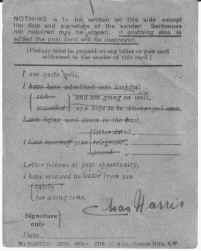 NOTHING is to be written on this side except
the date and signature of the sender. Sentences
not required may be erased. If anything else is
added the post card will be destroyed.
[Postage must be prepaid on any letter or post card
addressed to the sender of this card.]
I am quite well.
I have been admitted into hospital
sick and am going on well.
wounded and hope to be discharged soon.
I am being sent down to the base.
letter dated
I have received your telegram
parcel
Letter follows at first opportunity.
I have received no letter from you
lately
for a long time.
Signature only
Chas Harris
Date